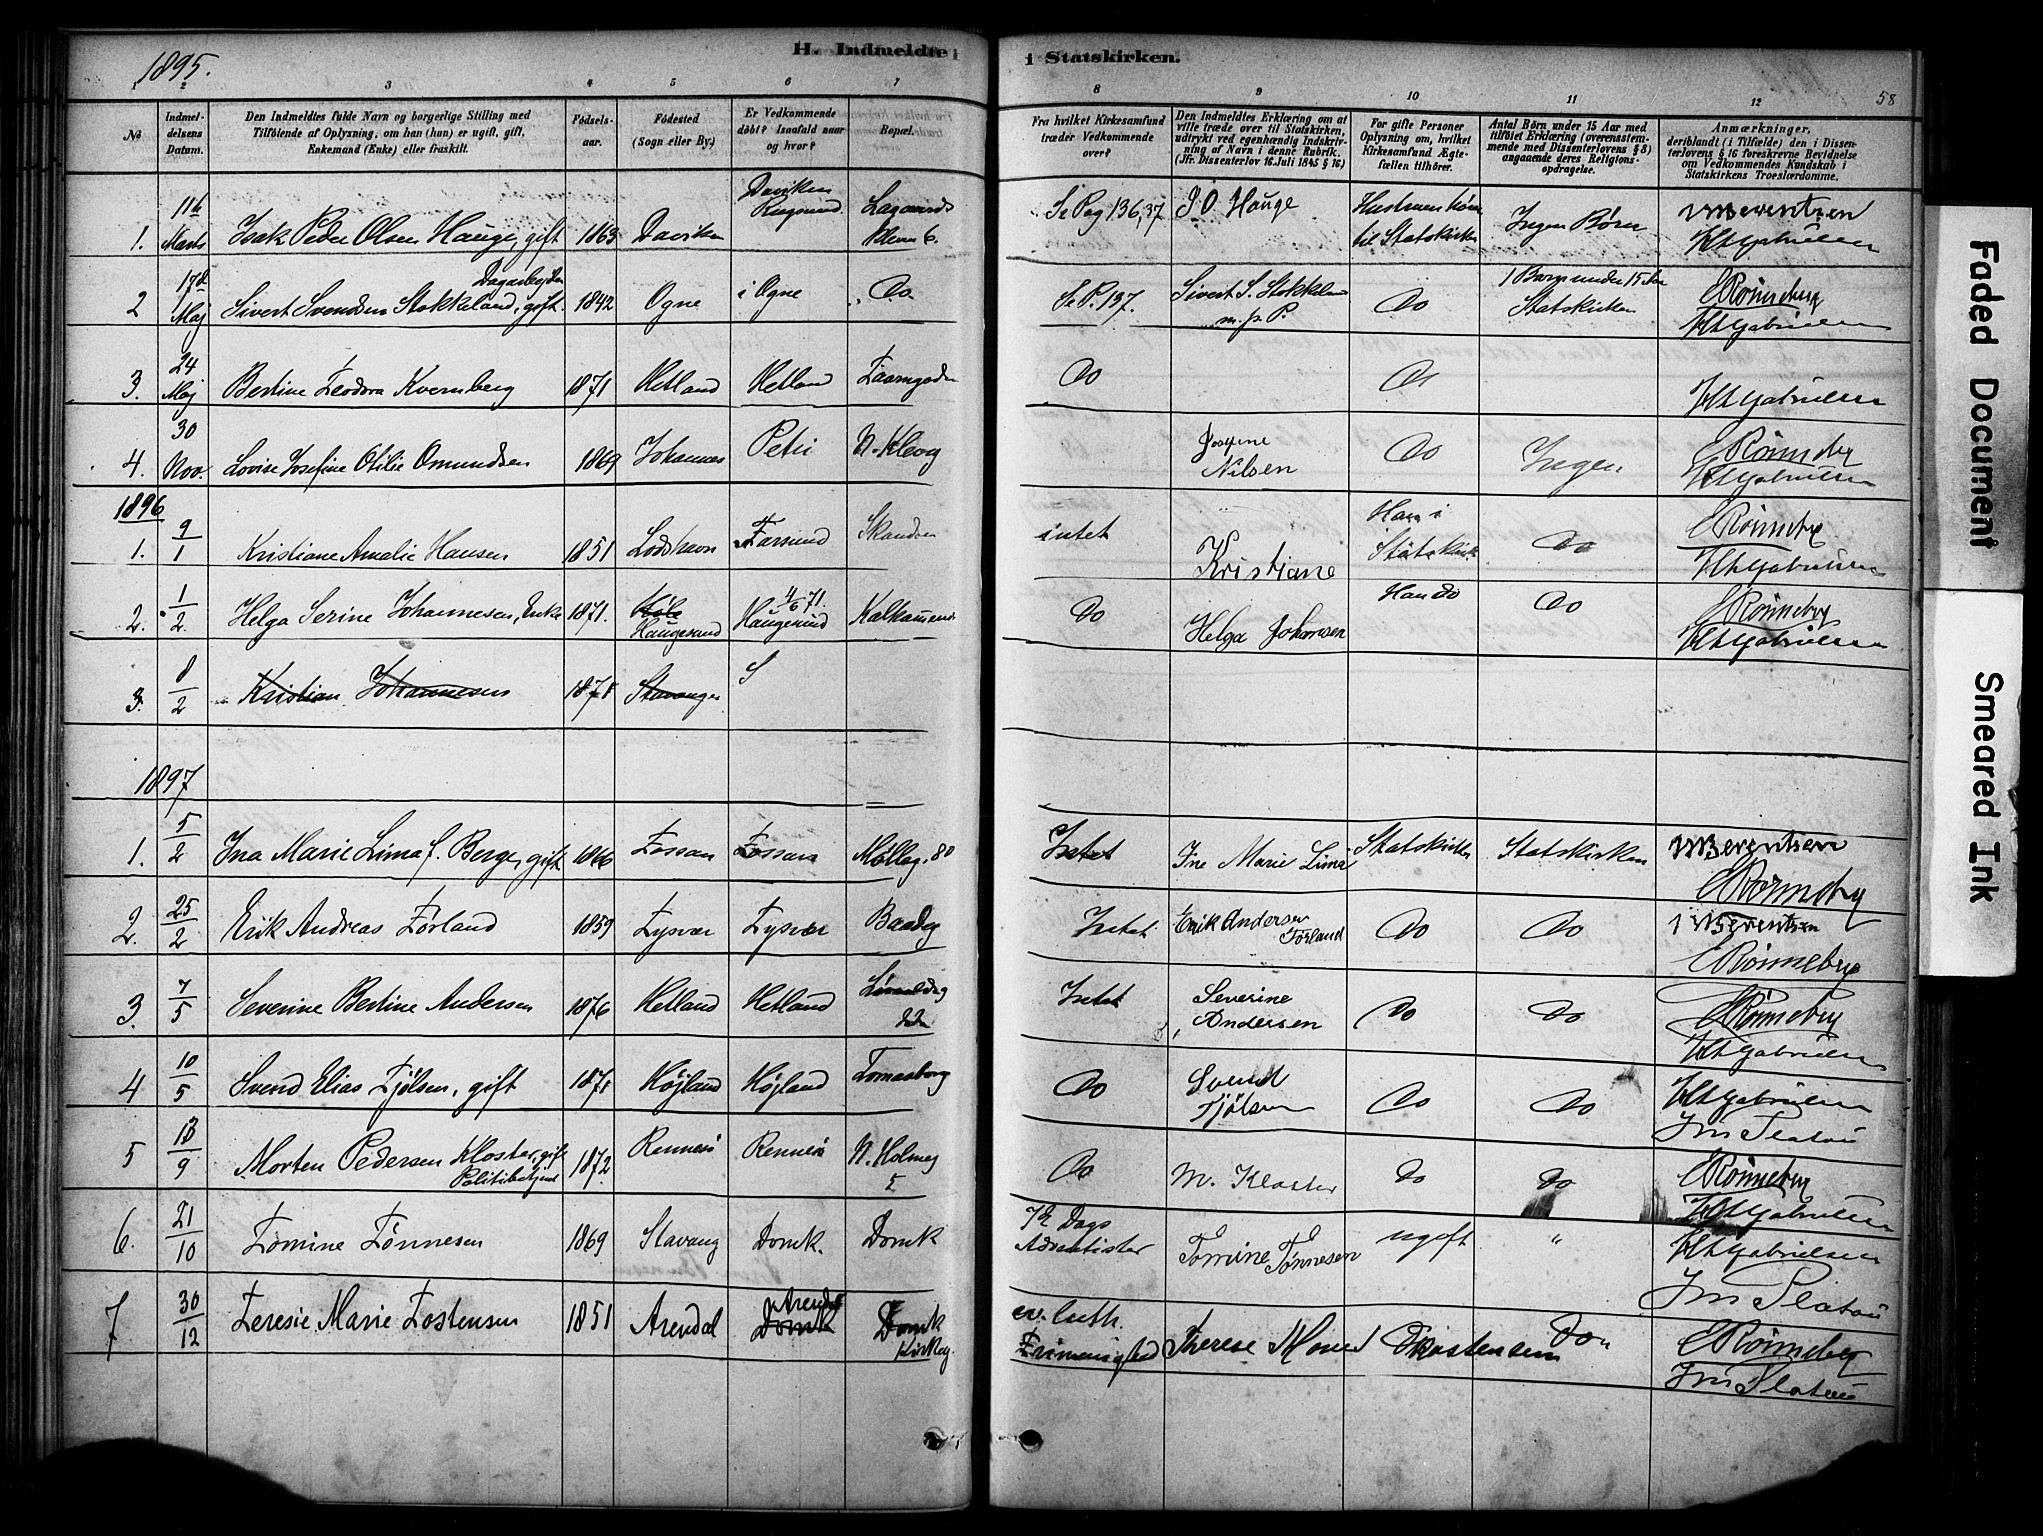 1895.
H. Indmeldte i
i Statskirken.
58
1 2 3 4 5 6 7
8 9 10 11 12
No
Indmel-
delsens
Datum.
Den Indmeldtes fulde Navn og borgerlige Stilling med
Tilföiende af Oplysning, om han (hun) er ugift, gift,
Enkemand (Enke) eller fraskilt.
Födsels-
aar.
Födested
(Sogn eller By.)
Er Vedkommende
döbt? Isaafald naar
og hvor?
Bopæl.
Fra hvilket Kirkesamfund
træder Vedkommende
over?
Den Indmeldtes Erklæring om at
ville træde over til Statskirken,
udtrykt ved egenhændig Indskriv-
ning af Navn i denne Rubrik.
(Jfr. Dissenterlov 16 Juli 1845 § 16.)
For gifte Personer
Oplysning om, hvilket
Kirkesamfund Ægte-
fællen tilhörer.
Antal Börn under 15 Aar med
tilföiet Erklæring (overensstem-
mende med Dissenterlovens § 8)
angaaende deres Religions-
opdragelse.
Anmærkninger,
deriblandt (i Tilfælde) den i Dissen-
terlovens § 16 foreskrevne Bevidnelse
om Vedkommendes Kundskab i
Statskirkens Troeslærdomme.
1. 11te Marts Isak Peder Olsen Hauge, gift 1863 Daviken Daviken Rugsund Lagaards
Se Pag 136,37 J O Hauge Hustruen hører til Statskirken Ingen Børn Berentsen Gabrielsen
2 17d Maj Sivert Svendsen Stokkeland, gift. Dagarbejder 1842 Ogne i Ogne Do
Se P. 137. Sivert S. Stokkeland m. p. P Do 1 Barn under 15 Aar Statskirken Rönneberg Gabrielsen
3. 24 Maj Bertine Teodora Kvernberg 1871 Hetland Hetland
Do Do Gabrielsen
4. 30 Nov. Lovise Josefine Otilie Omundsen 1869 Johannes Petri N. Klevg
Josefine Nilsen Do Ingen Rönneberg Gabrielsen
1896
1. 9/1 Kristiane Amalie Hansen 1851 Lodshavn Farsund Skandsen
intet Kristiane Han i Statskirk Do Rönneberg Gabrielsen
2. 1/2 Helga Serine Johannesen, Enke 1871. Haugesund 4/6 71. Haugesund
Do Helga Johansen Han do Do Rönneberg Gabrielsen
3. 8/2 Kristian Johannesen 1878 Stavanger S
1897
1. 5/2 Ina Marie Lima f. Berge, gift 1866 Fossan Fossan Mølleg. 80
Intet Ine Marie Lima Statskirken Statskirken Berentsen Rönneberg
2. 25/2 Erik Andreas Førland 1859 Tysvær Tysvær Baadg
Intet Erik Andersen Førland Do Do Berentsen Rönneberg
3. 7/5 Severine Bertine Andersen 1876 Hetland Hetland
Intet Severine Andersen Do Do Rönneberg Gabrielsen
4 10/5 Svend Elias Tjølsen, gift 1871 Højland Højland
Do Svend Tjølsen Do Do Gabrielsen
5 13/9 Morten Pedersen Kloster, gift Politibetjent 1872 Rennesø Rennesø N. Holmeg 5
Do M. Kloster Do Do Rönneberg Gabrielsen
6. 21/10 Tomine Tønnesen 1869 Stavang Domk. Domk
7de Dags Adventister Tomine Tønnesen ugift " Gabrielsen
7 30/12 Teresie Marie Tostensen 1851 Arendal Arendal Domk Domk Kirkeg.
ev. luth. Frimenighed Therese Marie Thostensen Do Rönneberg
Faded Document
Smeared Ink